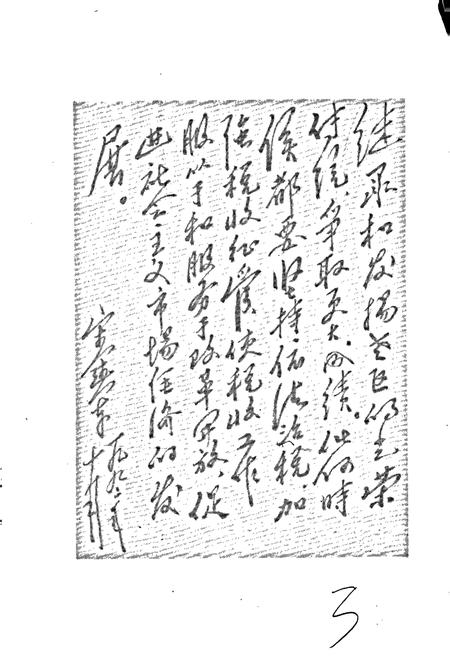 继承和发扬老区的光荣
传统，争取更大成绩。任何时
候都要坚持依法治税，加
强税收征管，使税收工作
服从于和服务于改革开放，促
进社会主义市场经济的发
展。
一九九二年
3